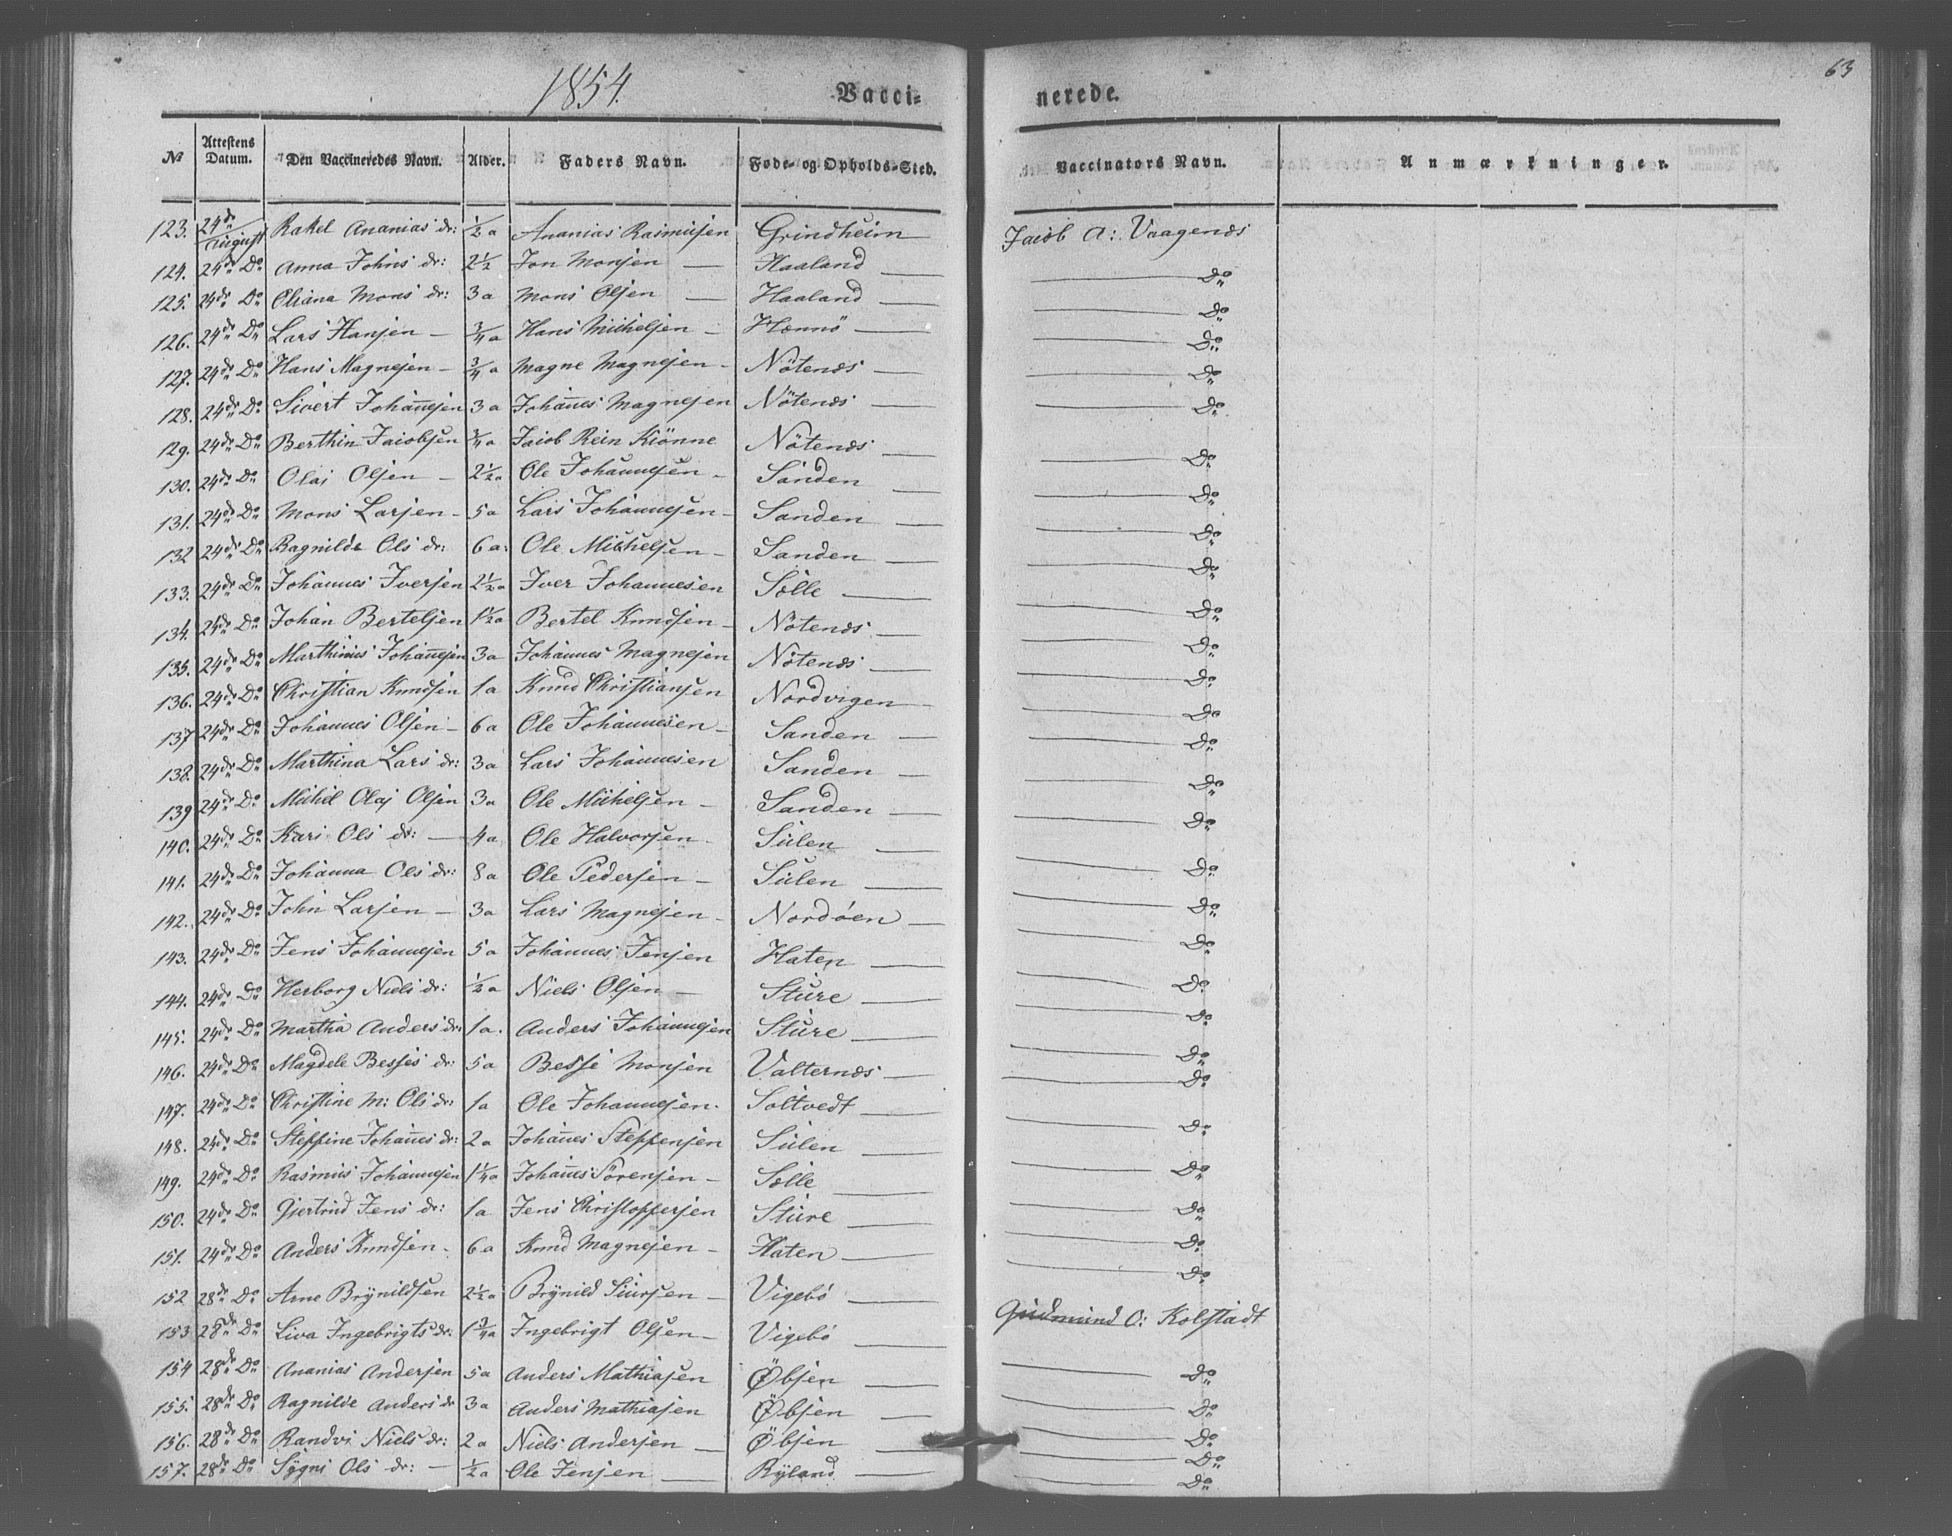 1854.
63
Vacci= nerede.
No Attestens Datum. Den Vaccineredes Navn. Alder. Faders Navn. Føde- og Opholds-Sted. Vaccinators Navn. Anmærkninger.
123. 24de August Rakel Ananias dr: 1/2 a Ananias Rasmusen Grindheim Jacob A: Vaagenæs
124. 24de Do Anna Johns dr: 2 1/2 Jon Monsen — Haaland — Do
125. 24de Do Eliana Mons dr: 3 a Mons Olsen — Haaland — Do
126. 24de Do Lars Hansen — 3/4 a Hans Michelsen — Hennö — Do
127. 24de Do Hans Magnesen — 3/4 a Magne Magnesen — Nötenæs — Do
128. 24de Do Sivert Johan̄esen 3 a Johan̄es Magnesen Nötenæs — Do
129. 24de Do Berthin Jacobsen 3/4 a Jacob Rein Kiönne Nötenæs — Do
130. 24de Do Olai Olsen — 2 1/2 a Ole Johannesen — Sanden — Do
131. 24de Do Mons Larsen — 5 a Lars Johannesen — Sanden — Do
132 24de Do Ragnilde Ols dr: 6 a: Ole Michelsen — Sanden — Do
133. 24de Do Johannes Iversen 2 1/2 a Iver Johannesen Sælle — Do
134. 24de Do Johan Bertelsen 1 1/2 a Bertel Knudsen — Nötenæs — Do
135. 24de Do Marthinus Johan̄esen 3 a Johannes Magnesen Nötenæs — Do
136. 24de Do Christian Knudsen 1 a Knud Christiansen Nordvigen — Do
137 24de Do Johannes Olsen — 6 a Ole Johannesen — Sanden — Do
138. 24de Do Marthina Lars dr: 3 a Lars Johannesen Sanden — Do
139 24de Do Michel Olaj Olsen 3 a Ole Michelsen — Sanden — Do
140. 24de Do Kari Ols dr: — 4 a Ole Halvorsen — Sulen — Do
141. 24de Do Johanna Ols dr: 8 a Ole Pedersen — Sulen — Do
142. 24de Do John Larsen — 3 a Lars Magnesen — Nordöen — Do
143. 24de Do Jens Johannesen 5 a Johannes Jensen Haten — Do
144. 24de Do Herborg Niels dr: 1/2 a Niels Olsen — Sture — Do
145. 24de Do Martha Anders dr: 1 a. Anders Johannesen Sture — Do
146. 24de Do Magdele Besses dr: 5 a Besse Monsen Valternæs — Do
147. 24de Do Christine M: Ols dr: 1 a Ole Johannesen. Soltvedt — Do
148. 24de Do Steffine Johan̄es dr: 2 a Johan̄es Steffensen Sulen — Do
149. 24de Do Rasmus Johannesen 1 1/4 a Johan̄es Sörensen — Sælle — Do
150. 24de Do Giertrud Jens dr: 1 a Jens Christoffersen Sture — Do
151. 24de Do Anders Knudsen — 6 a Knud Magnesen — Haten — Do
152 28de Do Arne Brynildsen 2 1/2 a Brynild Siursen — Vigebö — Do
153 28de Do Liva Ingebrigts dr: 1 3/4 a Ingebrigt Olsen — Vigebö — Gudmund O: Kolstadt
154 28de Do Ananias Andersen 5 a Anders Mathiasen Øbsen — Do
155. 28de Do Ragnilde Anders dr 3 a Anders Mathiasen Øbsen — Do
156. 28de Do Randvi Niels dr: 2 a Niels Andersen — Øbsen — Do
157. 28de Do Sygni Ols dr: — 1/2 a Ole Jensen — Ryland — Do
— Do